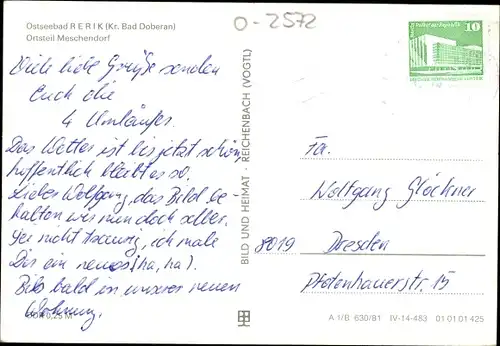 Ostseebad RERIK (Kr. Bad Doberan)
Ortsteil Meschendorf
O-2572
10
Viele liebe Grüße senden
Euch die
4 Umläufer.
Das Wetter ist bis jetzt schön,
hoffentlich bleibt es so.
Lieber Wolfgang, das Bild be-
halten wir nun doch selber.
Sei nicht traurig, ich male
Dir ein neues (ha, ha).
Bis bald in unserer neuen
Wohnung.
0,25 M
BILD UND HEIMAT · REICHENBACH (VOGTL)
Fa.
Wolfgang Glöckner
8019 Dresden
Pfotenhauerstr. 15
A 1/B 630/81 IV-14-483 01 01 01 425